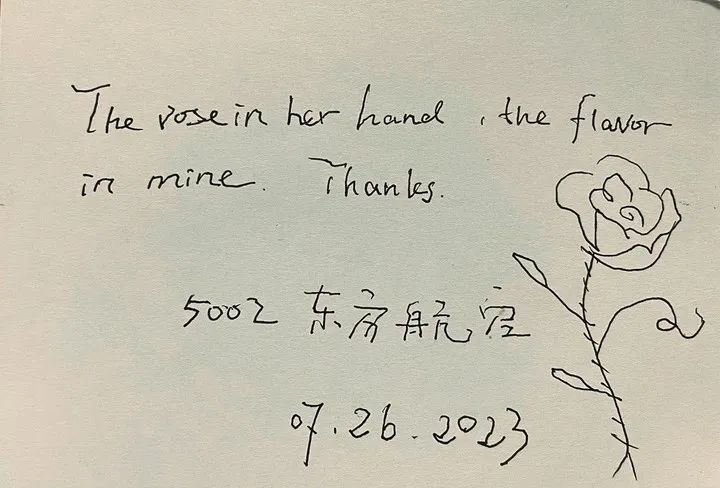 The rose in her hand, the flavor
in mine. Thanks.
5002 东方航空
07.26.2023